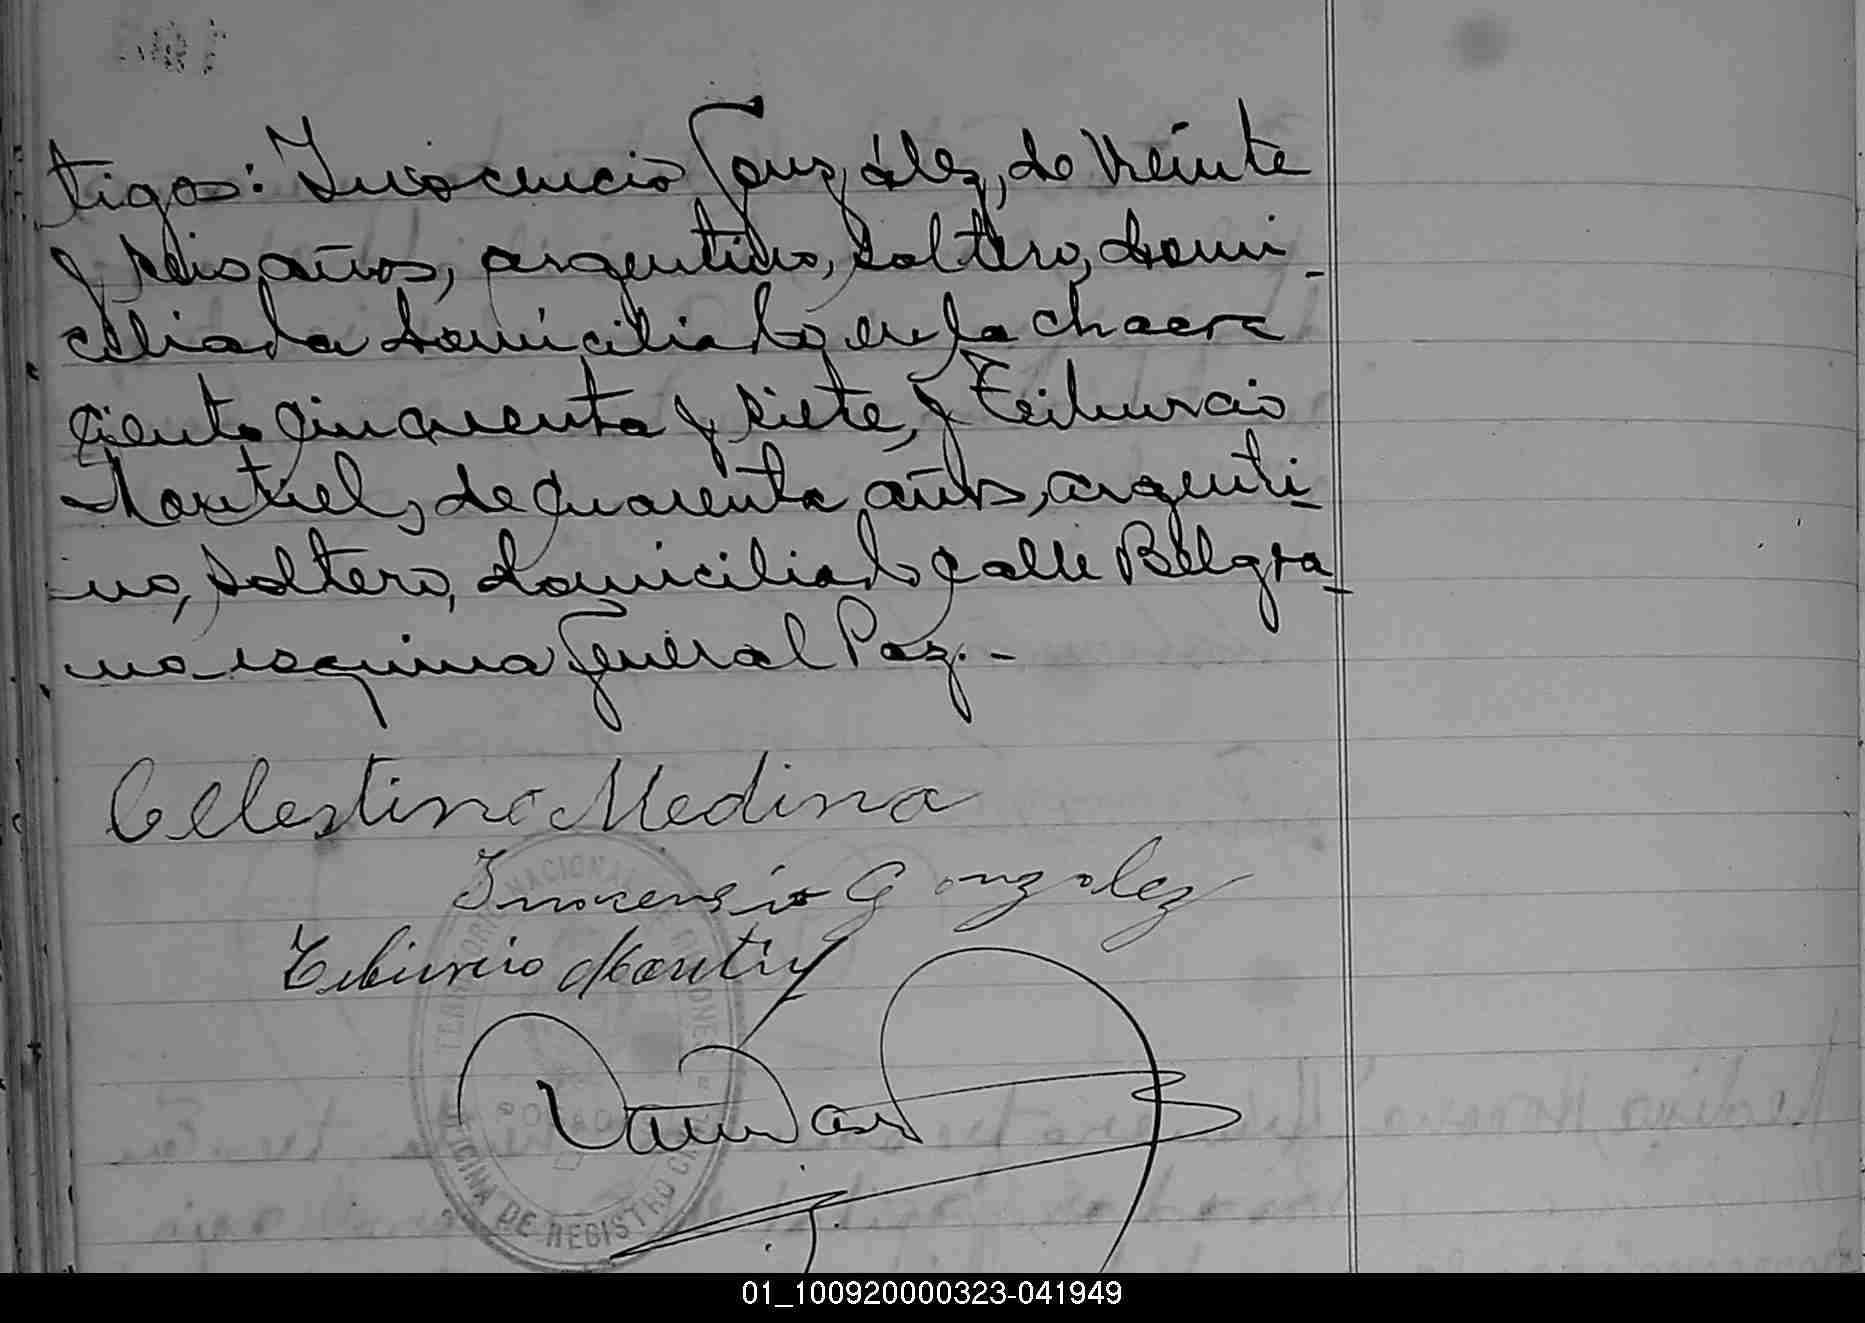 tigos: Inocencio González, de veinte
y seis años, argentino, soltero, domi-
ciliada domiciliado en la chacra
ciento cincuenta y siete, y Teiburcio
Montiel, de cuarenta años, argenti-
no, soltero, domiciliado calle Belgra-
no esquina General Paz.-
Celestino Medina
Inosensio Gonzalez
Teburcio
TERRITORIOS NACIONALES
POSADAS
OFICINA DE REGISTRO CIVIL
01_100920000323-041949